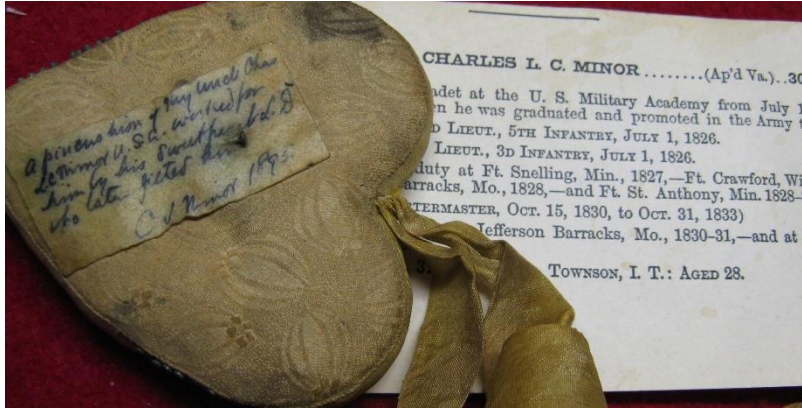 A pincushion of my uncle Chas
LC Minor U.S.A. worked for
him by his sweetheart L. D
who later jilted him
C L Minor 1893.
CHARLES L. C. MINOR ........(Ap'd Va.)..30
adet at the U. S. Military Academy from July 1
en he was graduated and promoted in the Army t
D LIEUT., 5TH INFANTRY, JULY 1, 1826.
LIEUT., 3D INFANTRY, JULY 1, 1826.
duty at Ft. Snelling, Min., 1827,—Ft. Crawford, Wi
arracks, Mo., 1828,—and Ft. St. Anthony, Min. 1828–
RTERMASTER, OCT. 15, 1830, TO OCT. 31, 1833)
Jefferson Barracks, Mo., 1830-31,—and at
3. TOWNSON, I. T.: AGED 28.